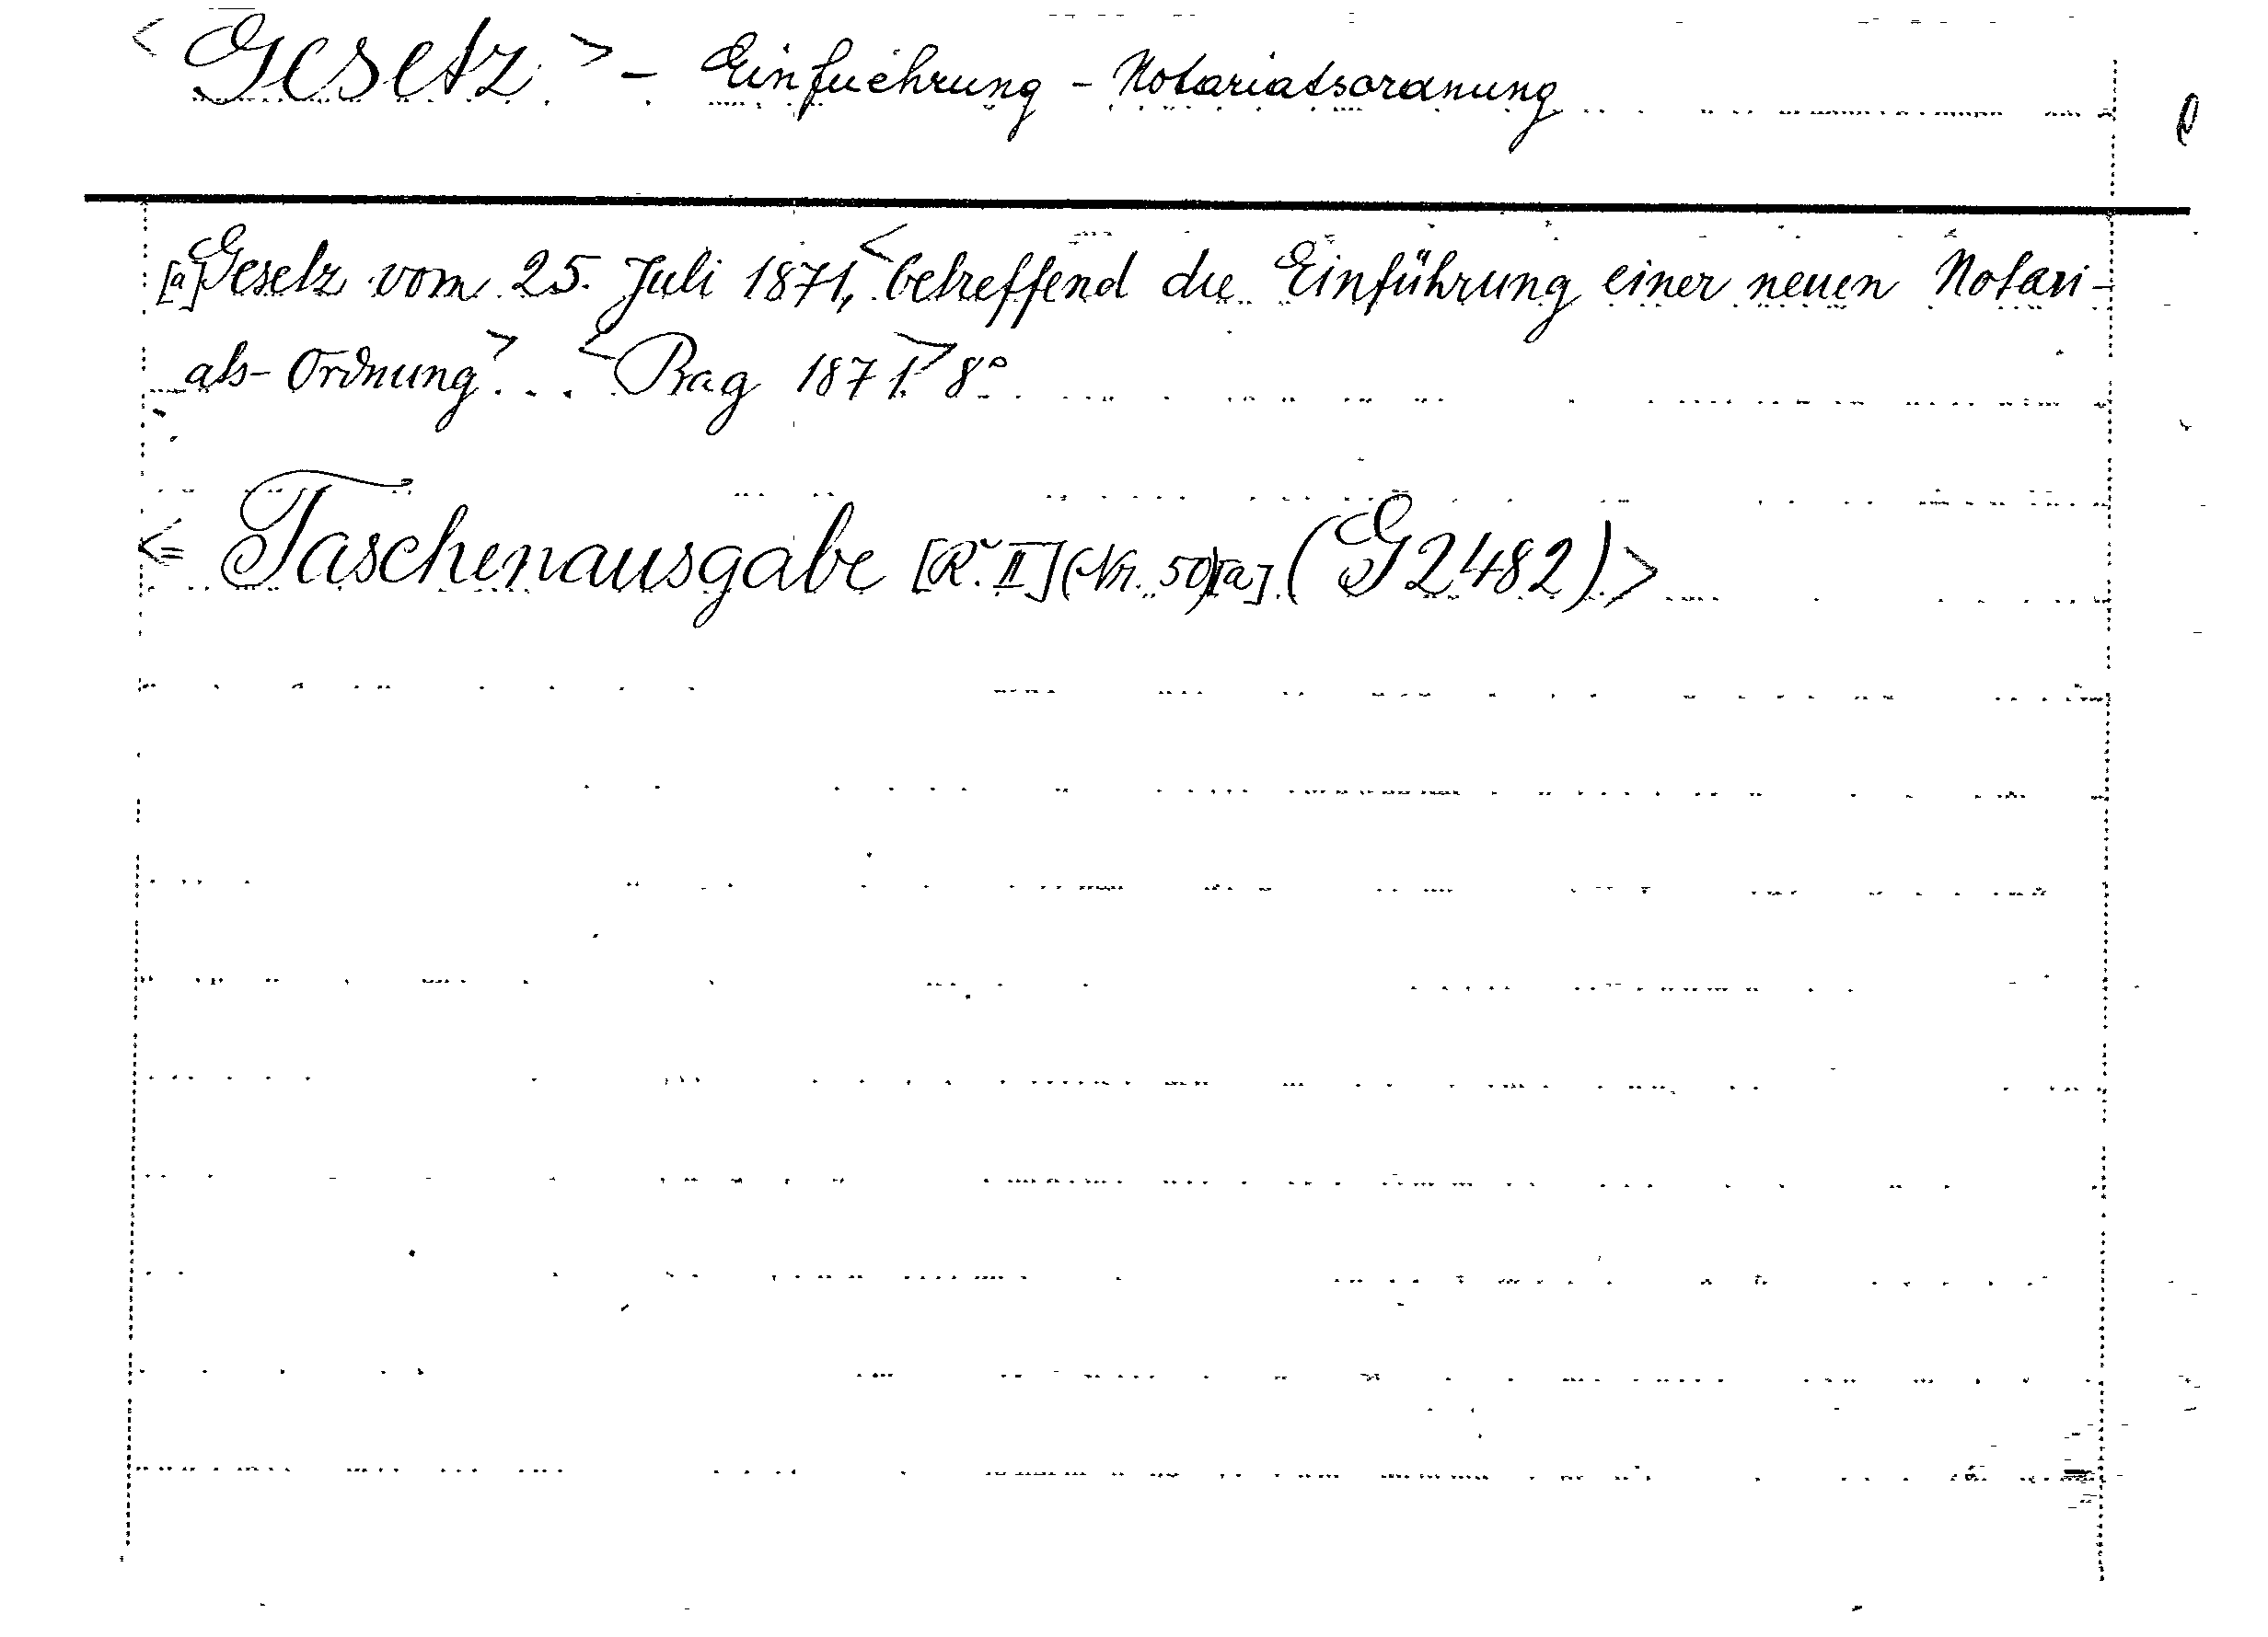 < Gesetz > - Einfuehrung - Notariatsordnung
[a] Gesetz vom 25. Juli 1871, < betreffend die Einführung einer neuen Notari-
ats-Ordnung > . . . < Prag 1871. > 8°
<= Taschenausgabe [R. II] (Nr. 50) [a] (G 2482) >